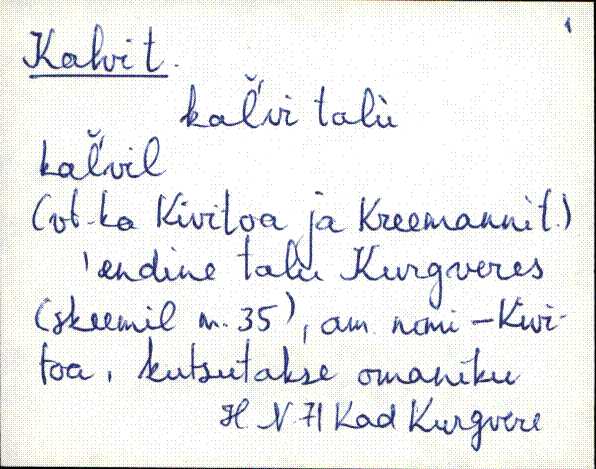 1
Kalvit.
kal̆'vi talù
kal̆'vil
(vt. ka Kivitoa ja Kreemannit.)
'endine talu Kurgveres
(skeemil n. 35), am. nimi – Kivi-
toa, kutsutakse omaniku
H. N 71 Kad Kurgvere